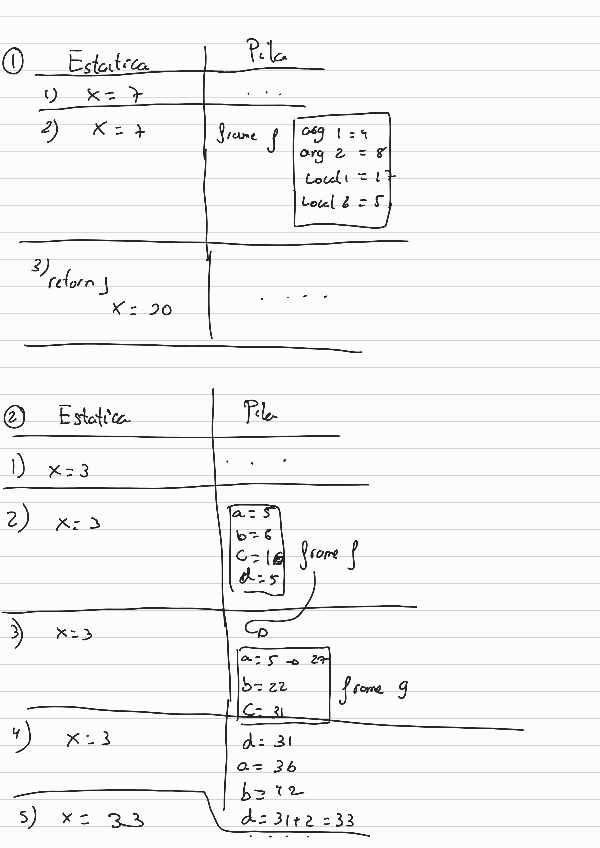 ① Estatica Pila
1) x = 7 ...
2) x = 7 frame f arg 1 = 4
arg 2 = 8
local 1 = 17
local 2 = 5
3) return f
x = 20 ....
② Estatica Pila
1) x = 3 ...
2) x = 3 a = 5
b = 6
c = 16 frame f
d = 5
3) x = 3
a = 5 → 27
b = 22 frame g
c = 31
4) x = 3 d = 31
a = 36
b = 42
5) x = 33 d = 31+2 = 33
....